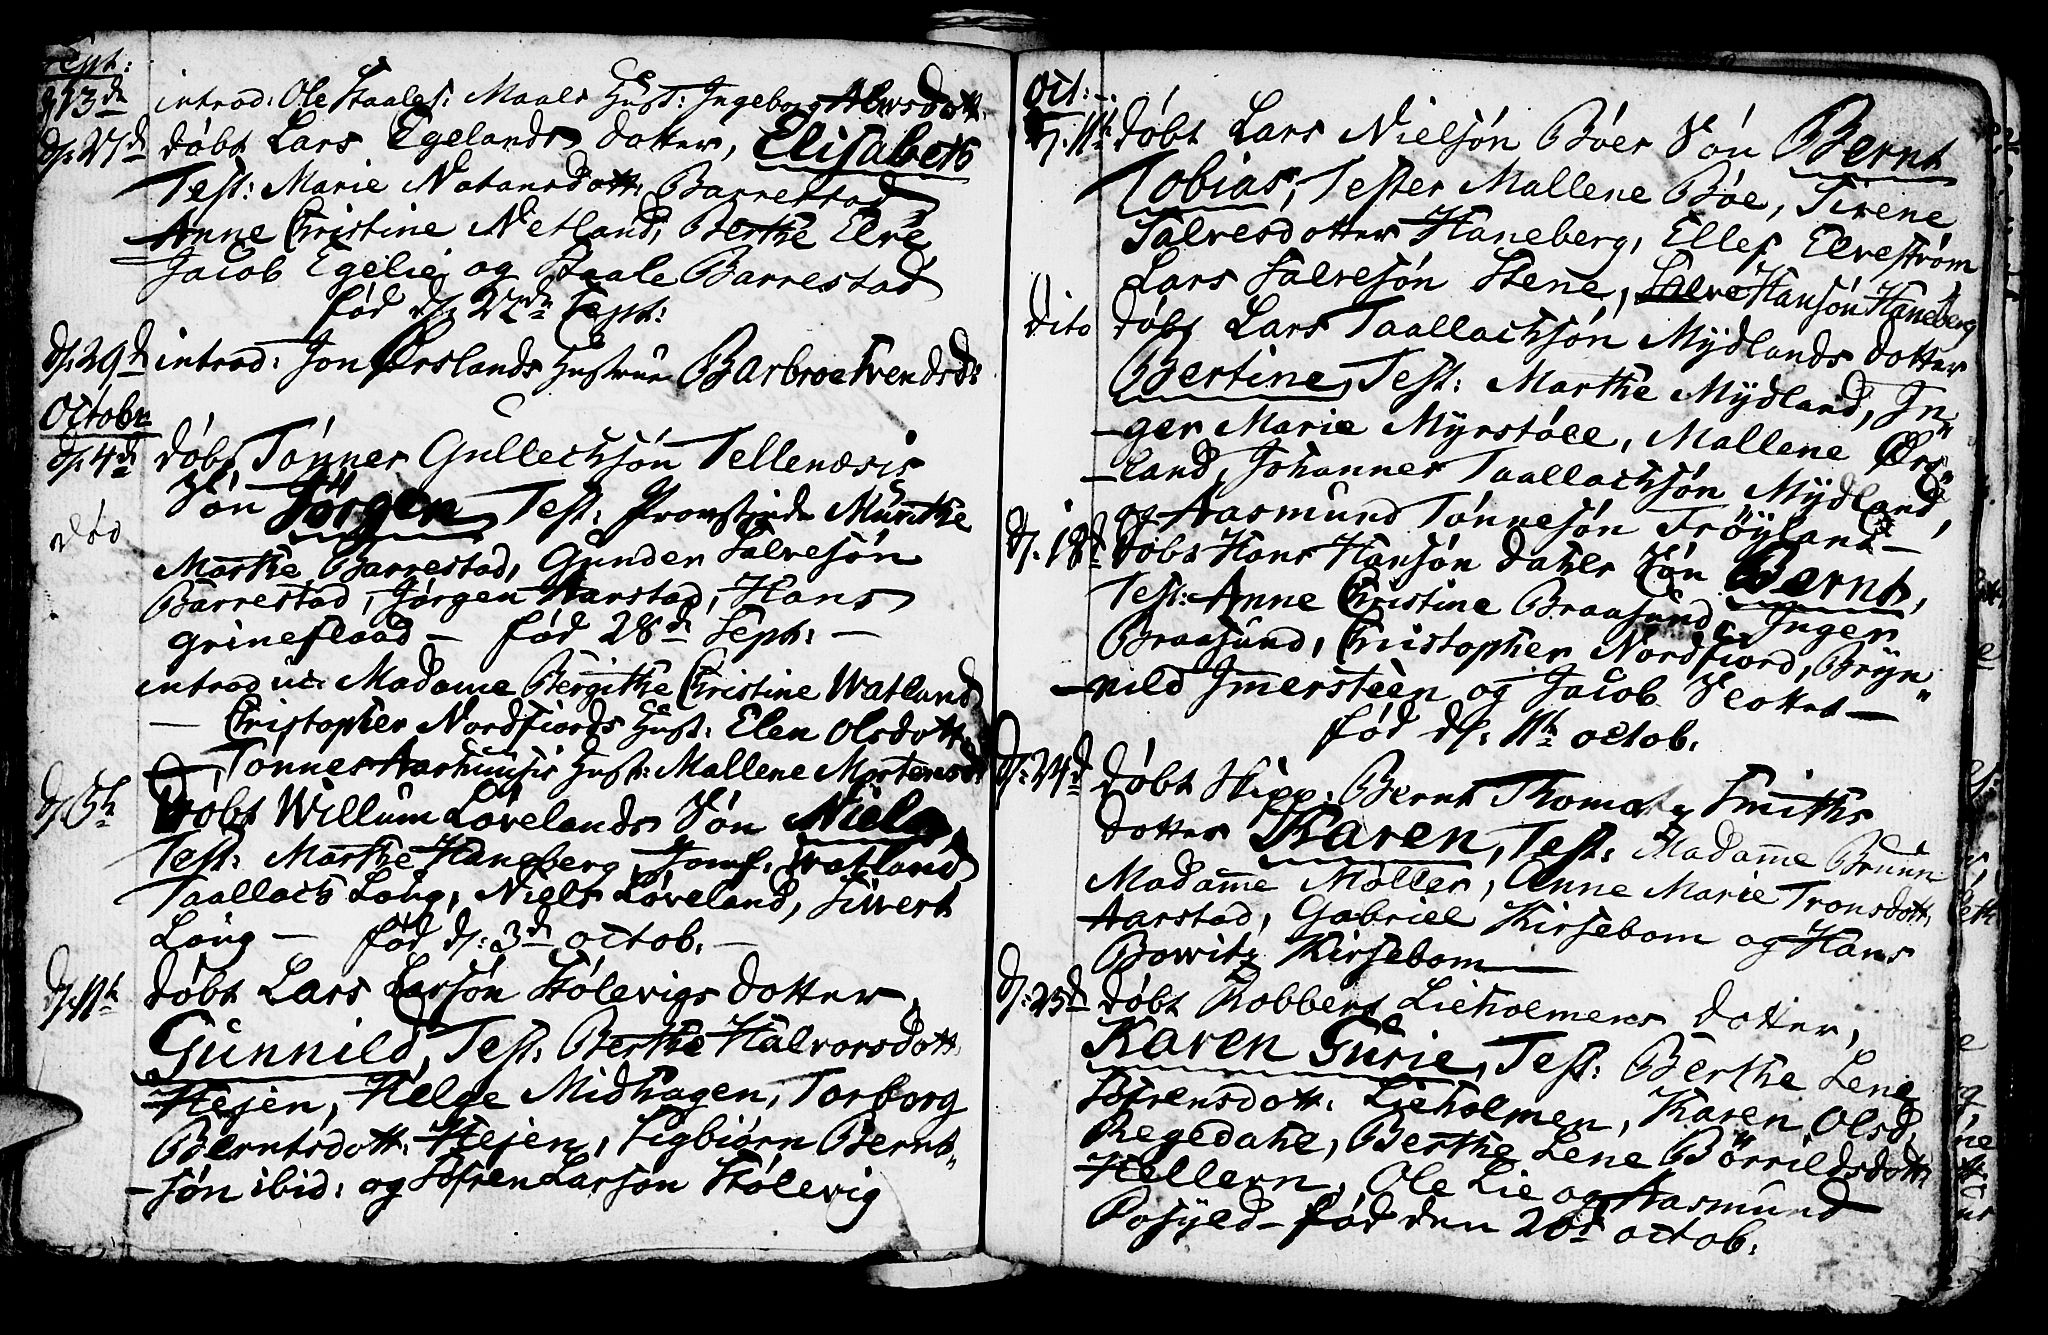 Sept:
d. 13de introd: Ole Staales: Maaler Hust: Ingeborg Alwsdott.
d. 27de døbt Lars Egelands dotter, Elisabeth
Test: Marie Natansdott: Barrestad
Anne Christine Netland, Berthe Elve
Jacob Egelie, og Staale Barrestad
fød d. 22de Sept:
d. 29de introd: Jon Ørslands Hustrue Barbroe Svendsd:
Octobr
d. 4de døbt Tønnes Gullechsøn Tellenæsis
Søn Jørgen Test: Provstinde Münthe
dito
Marthe Barrestad, Gunder Salvesøn
Barrestad, Jørgen Aarstad, Hans
Grineflaad – fød 28de Sept: –
introd Madame Bergithe Christine Watland
– Christopher Nordfiords Hust: Elen Olsdott
– Tønnes Hust: Mallene Mortensd:
d. 5te Døbt Willum Løvelands Søn Niels,
Test: Marthe Haneberg, Jomf. Watland
Taallach Loug, Niels Løveland, Siwert
Loug – fød d: 3de octob. –
d. 11te døbt Lars Larsøn Stølevigs dotter,
Gunnild, Test: Berthe Halvorsdott
Hejen, Helge Midhagen, Torborg
Berntsdott: Hejen, Sigbiørn Bernt„
–søn ibid: og Søfren Larsøn Stølevig
Oct: –
d. 11te døbt Lars Nielsøn Bøes Søn Bernt
Tobias, Tester Mallene Bøe, Sirene
Salvesdotter Haneberg, Ellef Elvestrøm
Lars Salvesøn Stene, Salve Hansøn Haneberg
dito døbt Lars Taallachsøn Mydlands dotter
Bertine, Test: Marthe Mydland, In„
–ger Marie Myrstøel, Mallene Ørs„
–land, Johannes Taallachsøn Mydland,
og Aasmund Tønnesøn Frøyland –
d. 18de Døbt Hans Hansøn dahls Søn Bernt,
Test: Anne Christine Braasund, Inger
Braasund, Christopher Nordfiord, Bryn„
–nild Imersteen og Jacob Skottet –
fød d: 11te octob.
d. 24de døbt Skipp: Bernt Thomas Smiths
dotter Karen, Test: Madame Bruun
Madame Møller, Anne Marie Tronsdott.
Aarstad, Gabriel Kirsebom og Hans
Bowitz Kirsebom –
d: 25de døbt Robbert Lieholmens dotter,
Karen Gurie, Test: Berthe Lene
Søfrensdott: Lieholmen, Karen Olsd.
Regedahl, Berthe Lene Børrildsdott:
Hellern, Ole Lie og Aasmund
Rosyld – fød den 20de octob.